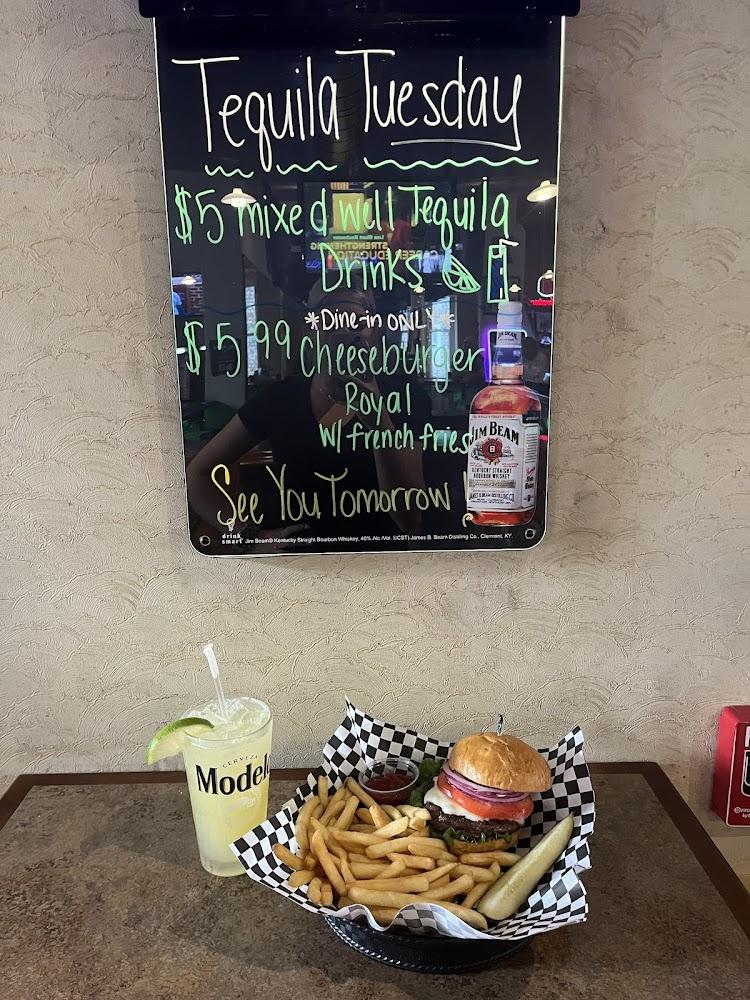 Tequila Tuesday
$5 mixed well Tequila
Drinks
*Dine-in ONLY*
$5.99 Cheeseburger
Royal
W/ french fries
JIM BEAM
KENTUCKY STRAIGHT
BOURBON WHISKEY
See You Tomorrow
drink
smart
Jim Beam® Kentucky Straight Bourbon Whiskey, 40% Alc./Vol. ©(CST) James B. Beam Distilling Co., Clermont, KY.
CERVEZA
Modelo